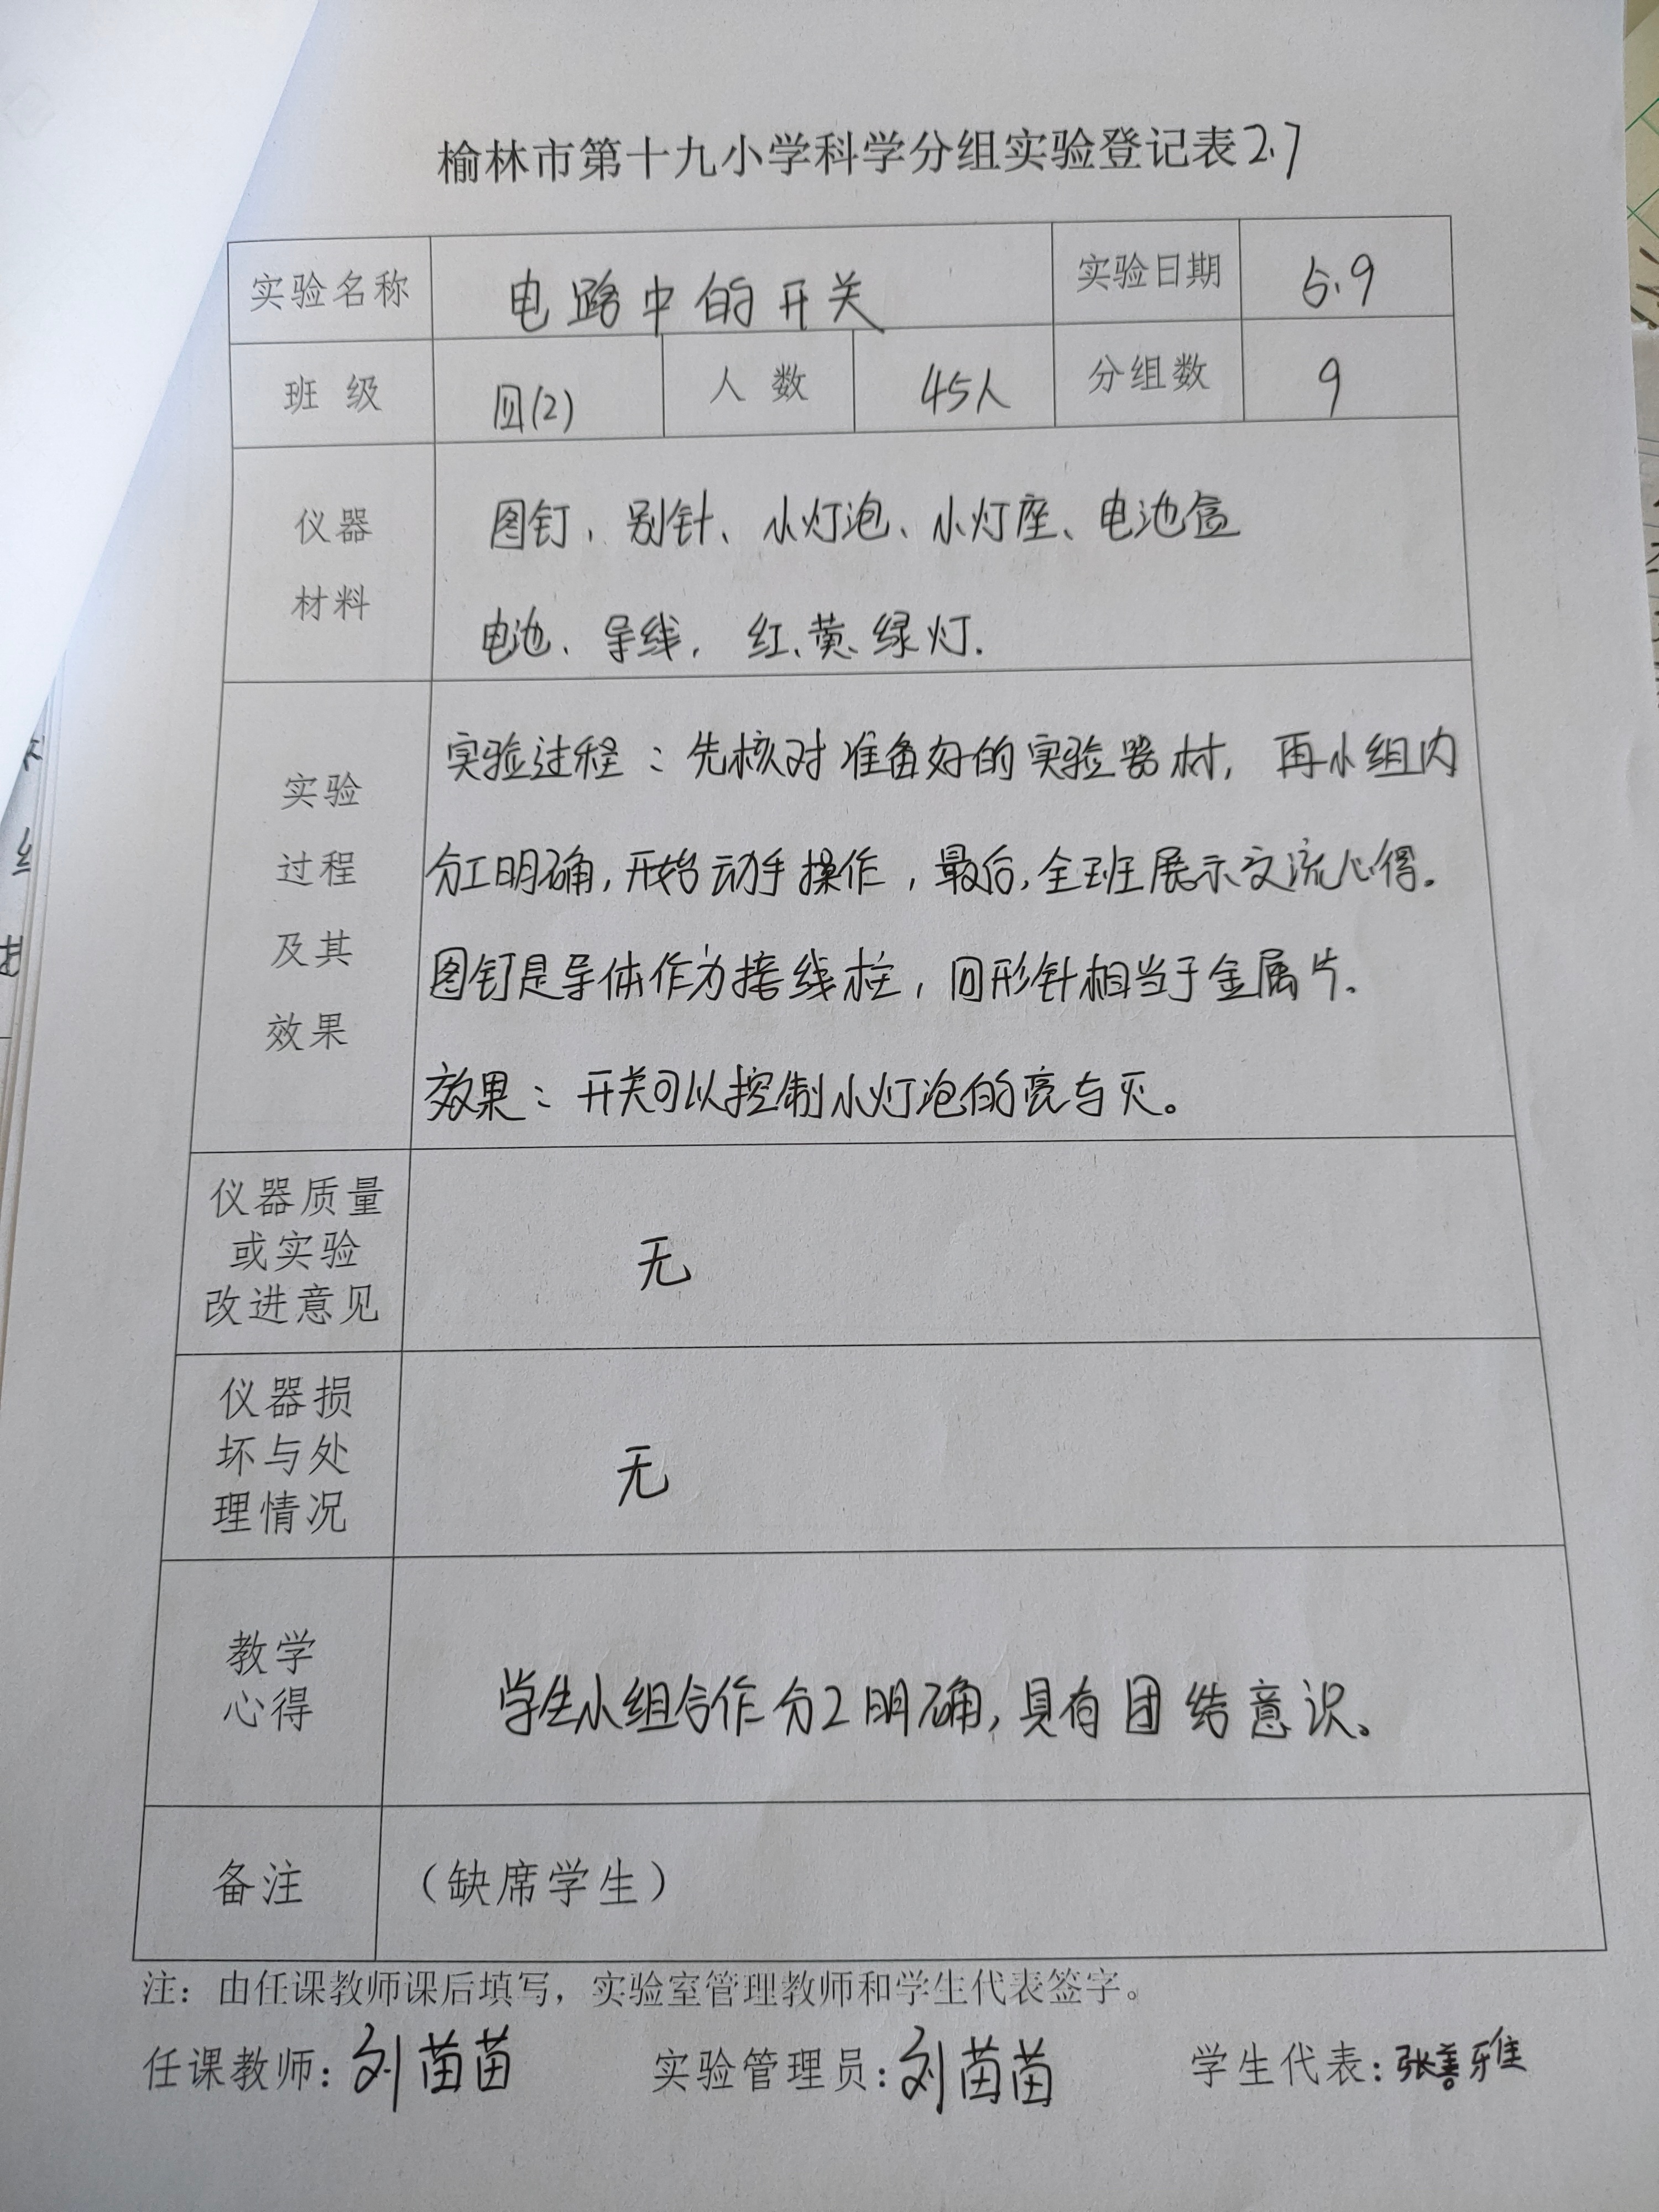 榆林市第十九小学科学分组实验登记表2.7
实验名称 电路中的开关 实验日期 5.9
班级 四(2) 人数 45人 分组数 9
仪器
材料
图钉、别针、小灯泡、小灯座、电池盒
电池、导线, 红、黄、绿灯.
实验
过程
及其
效果
实验过程：先核对准备好的实验器材, 再小组内
分工明确,开始动手操作,最后,全班展示交流心得.
图钉是导体作为接线柱,回形针相当于金属片.
效果：开关可以控制小灯泡的亮与灭。
仪器质量
或实验
改进意见
无
仪器损
坏与处
理情况
无
教学
心得
学生小组合作分工明确,具有团结意识。
备注 （缺席学生）
注：由任课教师课后填写，实验室管理教师和学生代表签字。
任课教师:刘苗苗 实验管理员:刘苗苗 学生代表:张善雅